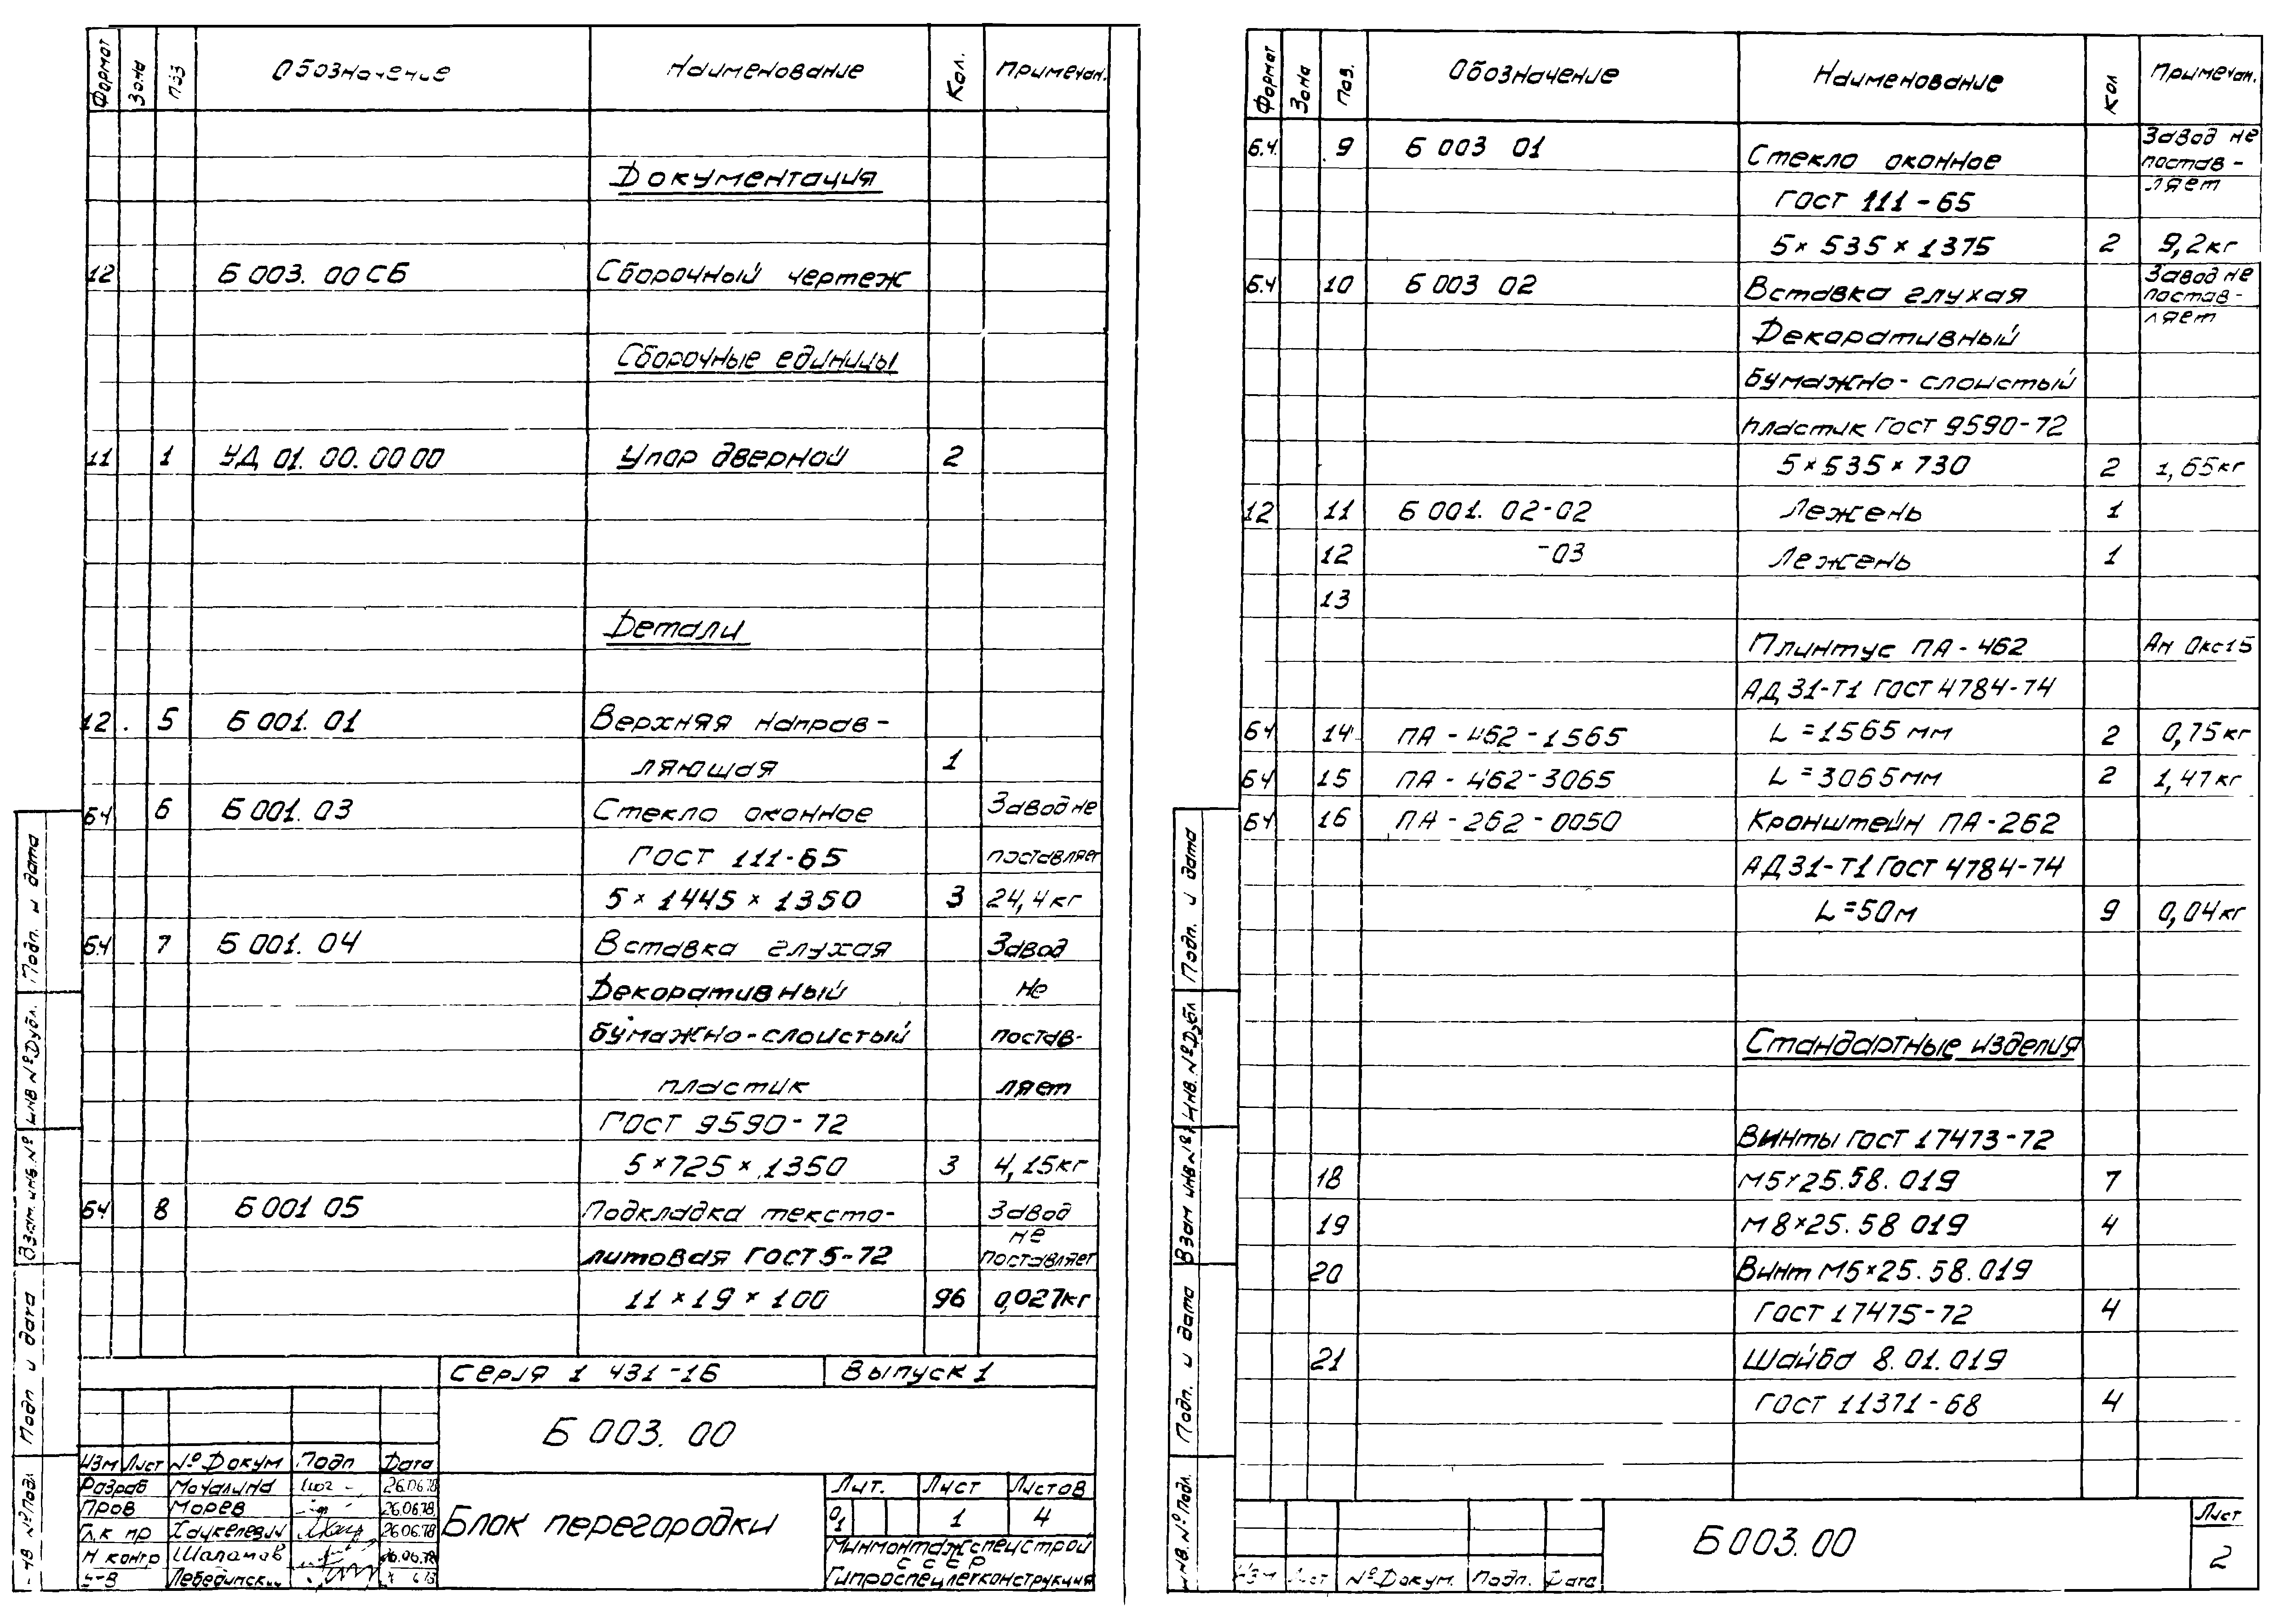 Формат Зона Поз Обозначение Наименование Кол. Примечан.
Документация
12 Б 003. 00 СБ Сборочный чертеж
Сборочные единицы
11 1 УД 01. 00. 00 00 Упор дверной 2
Детали
12 . 5 Б 001. 01 Верхняя направ-
ляющая 1
Б4 6 Б 001. 03 Стекло оконное Завод не
ГОСТ 111-65 поставляет
5 × 1445 × 1350 3 24,4 кг
Б4 7 Б 001. 04 Вставка глухая Завод
Декоративный не
бумажно-слоистый постав-
пластик ляет
ГОСТ 9590-72
5 × 725 × 1350 3 4,15 кг
Б4 8 Б 001 05 Подкладка тексто- Завод
не
литовая ГОСТ 5-72 поставляет
11 × 19 × 100 96 0,027 кг
Серия 1 431-16 Выпуск 1
Б 003. 00
Изм Лист № Докум Подп Дата
Разраб Мочалина 26.06.78
Пров Морев 26.06.78
Гл.к пр 26.06.78
Н контр Шаламов 26.06.78
Лебединский
Блок перегородки
Лит. Лист Листов
1 4
Минмонтажспецстрой
СССР
Гипроспецлегконструкция
Подп. и дата
Инв № Дубл.
Взам. инв. №
Подп и дата
Инв № Подл
Формат Зона Поз. Обозначение Наименование Кол Примечан.
Б.Ч. 9 Б 003 01 Стекло оконное Завод не
постав-
ляет
ГОСТ 111-65
5 × 535 × 1375 2 9,2 кг
Б.Ч 10 Б 003 02 Вставка глухая Завод не
постав-
ляет
Декоративный
бумажно-слоистый
пластик ГОСТ 9590-72
5 × 535 × 730 2 1,65 кг
12 11 Б 001. 02-02 Лежень 1
12 -03 Лежень 1
13
Плинтус ПА-462 Ан Окс 15
АД 31-Т1 ГОСТ 4784-74
Б4 14 ПА-462-1565 L = 1565 мм 2 0,75 кг
Б4 15 ПА-462-3065 L = 3065 мм 2 1,47 кг
Б4 16 ПА-262-0050 Кронштейн ПА-262
АД 31-Т1 ГОСТ 4784-74
L = 50 м 9 0,04 кг
Стандартные изделия
Винты ГОСТ 17473-72
18 М5×25.58. 019 7
19 М8×25.58 019 4
20 Винт М5×25. 58. 019
ГОСТ 17475-72 4
21 Шайба 8. 01. 019
ГОСТ 11371-68 4
Изм Лист № Докум. Подп. Дата
Б 003. 00
Лист
2
Подп. и дата
Инв. № Дубл
Взам инв №
Подп. и дата
Инв. № Подл.